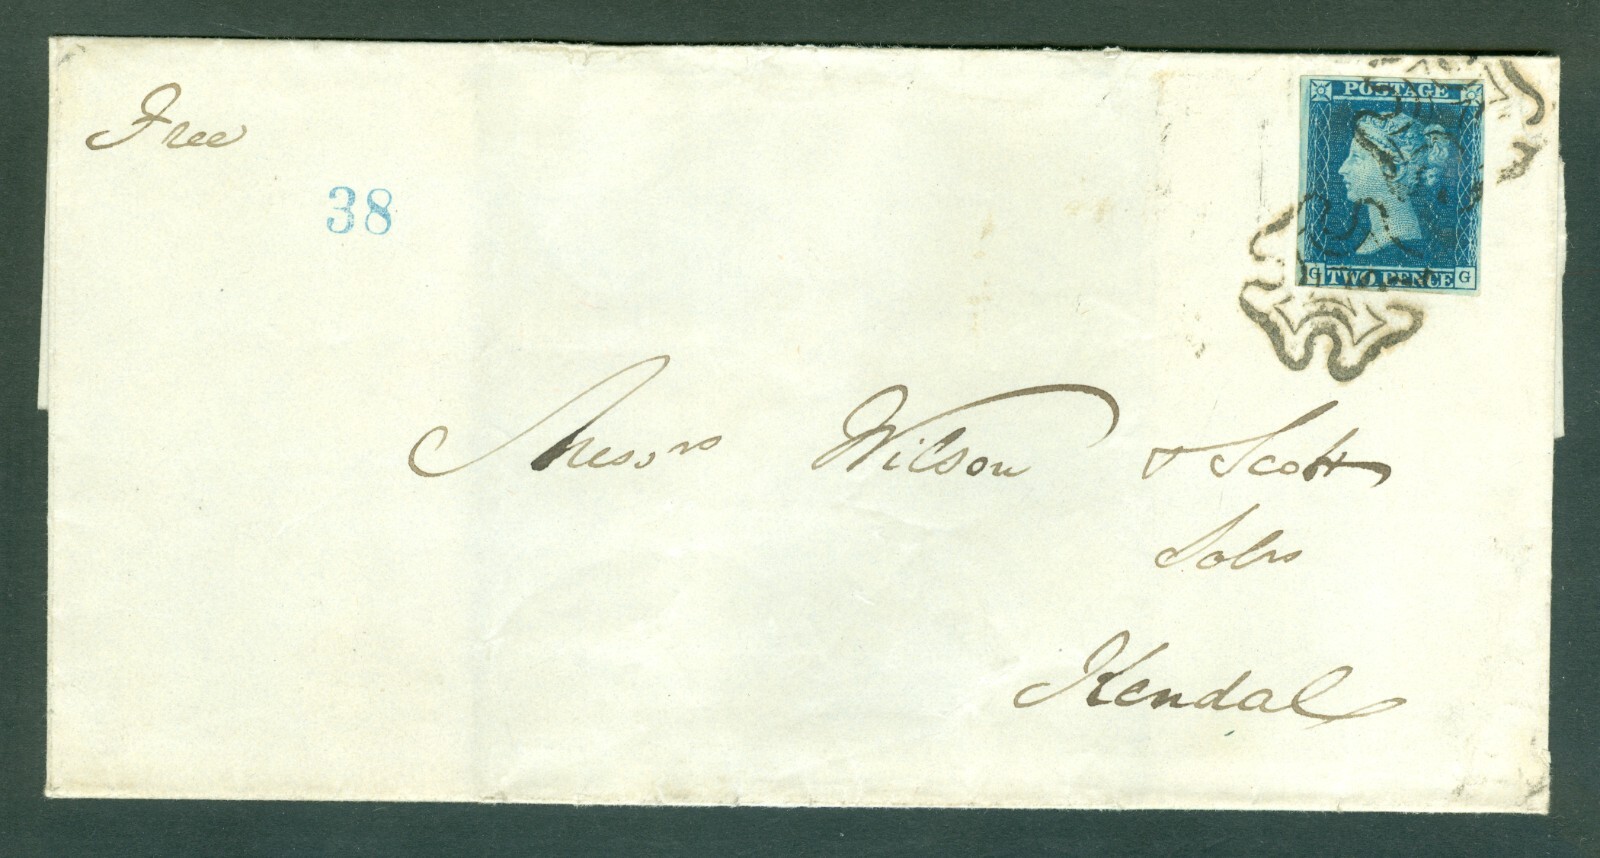 Free
38
POSTAGE
G TWO PENCE G
Messrs Wilson & Scott
Solrs
Kendal